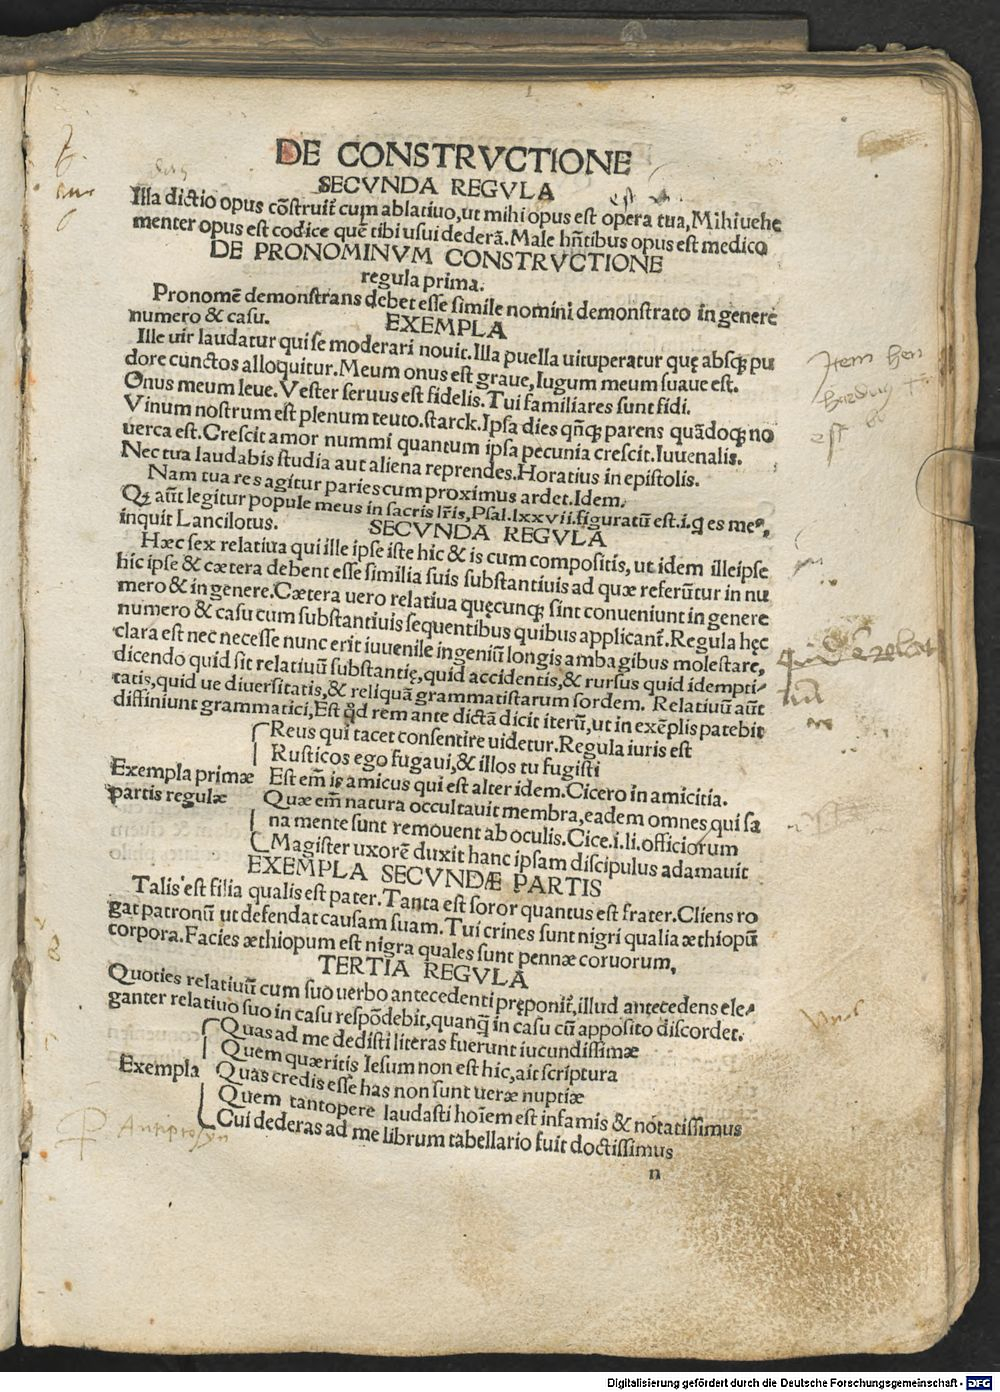 DE CONSTRVCTIONE
SECVNDA REGVLA
Illa dictio opus cōstruit̃ cum ablatiuo, ut mihi opus est opera tua, Mihi uehe
menter opus est codice quē tibi usui dederā. Male hñtibus opus est medico
DE PRONOMINVM CONSTRVCTIONE
regula prima.
Pronomē demonstrans debet esse simile nomini demonstrato in genere
numero & casu. EXEMPLA
Ille uir laudatur qui se moderari nouit. Illa puella uituperatur quę absq; pu
dore cunctos alloquitur. Meum onus est graue, Iugum meum suaue est.
Onus meum leue. Vester seruus est fidelis. Tui familiares sunt fidi.
Vinum nostrum est plenum teuto. starck. Ipsa dies qñq; parens quādoq; no
uerca est. Crescit amor nummi quantum ipsa pecunia crescit. Iuuenalis.
Nec tua laudabis studia aut aliena reprendes. Horatius in epistolis.
Nam tua res agitur paries cum proximus ardet. Idem.
Qꝫ aūt legitur popule meus in sacris lr̃is, Psal. lxxvii. figuratū est. i. q̃ es me⁹,
inquit Lancilotus. SECVNDA REGVLA
Hæc sex relatiua qui ille ipse iste hic & is cum compositis, ut idem illeipse
hic ipse & cætera debent esse similia suis substantiuis ad quæ referūtur in nu
mero & in genere. Cætera uero relatiua quęcunq; sint conueniunt in genere
numero & casu cum substantiuis sequentibus quibus applicant̃. Regula hęc
clara est nec necesse nunc erit iuuenile ingeniū longis ambagibus molestare,
dicendo quid sit relatiuū substantię, quid accidentis, & rursus quid idempti-
tatis, quid ue diuersitatis, & reliquā grammatistarum sordem. Relatiuū aūt
diffiniunt grammatici, Est q̃d rem ante dictā dicit iterū, ut in exēplis patebit
Reus qui tacet consentire uidetur. Regula iuris est
Rusticos ego fugaui, & illos tu fugisti
Exempla primæ Est em̃ is amicus qui est alter idem. Cicero in amicitia.
partis regulæ Quæ em̃ natura occultauit membra, eadem omnes qui sa
na mente sunt remouent ab oculis. Cice. i. li. officiorum
Magister uxorē duxit hanc ipsam discipulus adamauit
EXEMPLA SECVNDÆ PARTIS
Talis est filia qualis est pater. Tanta est soror quantus est frater. Cliens ro
gat patronū ut defendat causam suam. Tui crines sunt nigri qualia æthiopū
corpora. Facies æthiopum est nigra quales sunt pennæ coruorum,
TERTIA REGVLA
Quoties relatiuū cum suo uerbo antecedenti pręponit̃, illud antecedens ele-
ganter relatiuo suo in casu respōdebit, quanq̃ in casu cū apposito discordet.
Quas ad me dedisti literas fuerunt iucundissimæ
Quem quæritis Iesum non est hic, ait scriptura
Exempla Quas credis esse has non sunt ueræ nuptiæ
Quem tantopere laudasti hoīem est infamis & notatissimus
Cui dederas ad me librum tabellario fuit doctissimus
n
est
Item
est
Digitalisierung gefördert durch die Deutsche Forschungsgemeinschaft - DFG